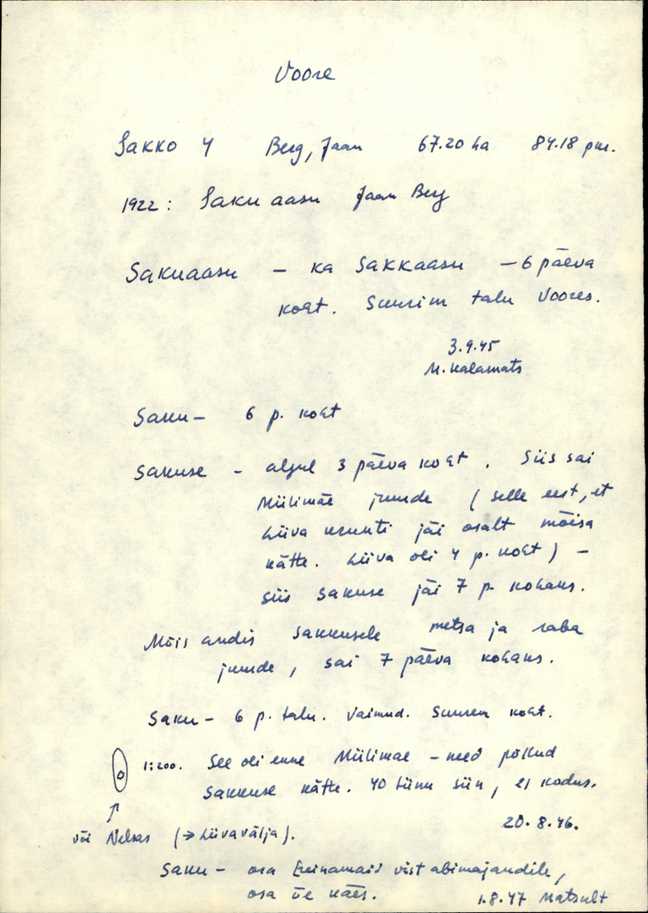 Voore
Sakko 4 Berg, Jaan 67.20 ha 84.18 pm.
1922: Saku aasu Jaan Berg
Sakuaasu – ka Sakkaasu – 6 päeva
koht. Suurim talu Voores.
3.9.45
M. Kalamats
Saku – 6 p. koht
Sakuse – algul 3 päeva koht. Siis sai
Mülimäe juurde (selle eest, et
Liiva krunti jäi osalt mõisa
kätte. Liiva oli 4 p. koht) –
siis Sakuse jäi 7 p. kohaks.
Mõis andis Sakkusele metsa ja raba
juurde, sai 7 päeva kohaks.
Saku – 6 p. talu. Vaimud. Suurem koht.
1:200. See oli enne Mülimäe – need põllud
Sakkuse kätte. 40 tünn siin, 21 kodus.
20.8.46.
või Nelsas (→ Liivavälja).
Saku – osa heinamaid vist abimajandile,
osa üe käes.
1.8.47 Matsult